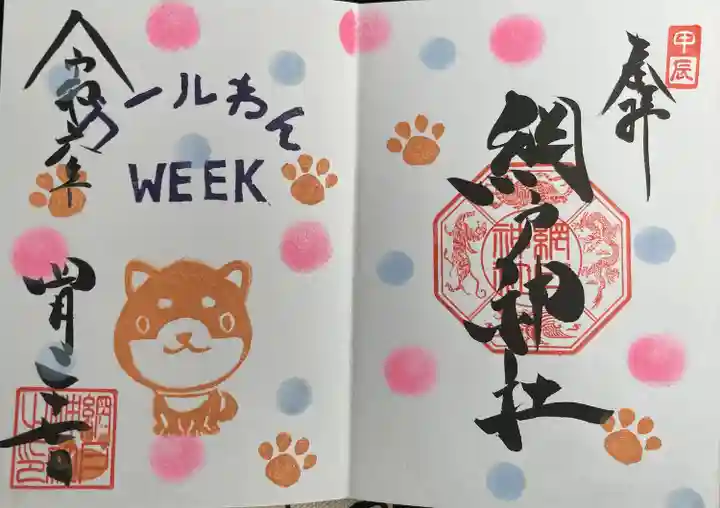 甲辰
奉拝
網戸神社
網戸神社
ールわん
WEEK
令和六年
四月二十七日
網戸神社之印